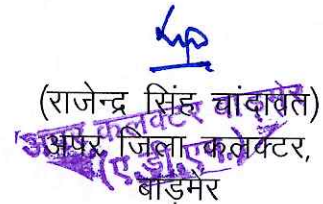 (राजेन्द्र सिंह चांदावत)
अपर जिला कलेक्टर,
बाड़मेर
अपर कलक्टर
(ए.डी.एम.)